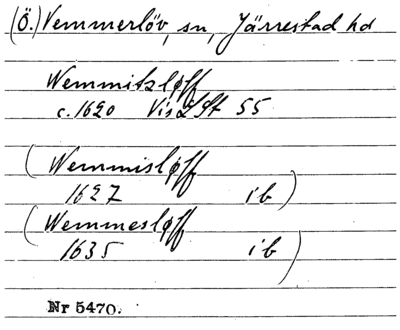 (Ö.) Vemmerlöv, sn, Järrestad hd
Wemmitzløff
c. 1620 Vis LSt 55
(Wemmisløff
1627 ib)
(Wemmesløff
1635 ib)
Nr 5470.